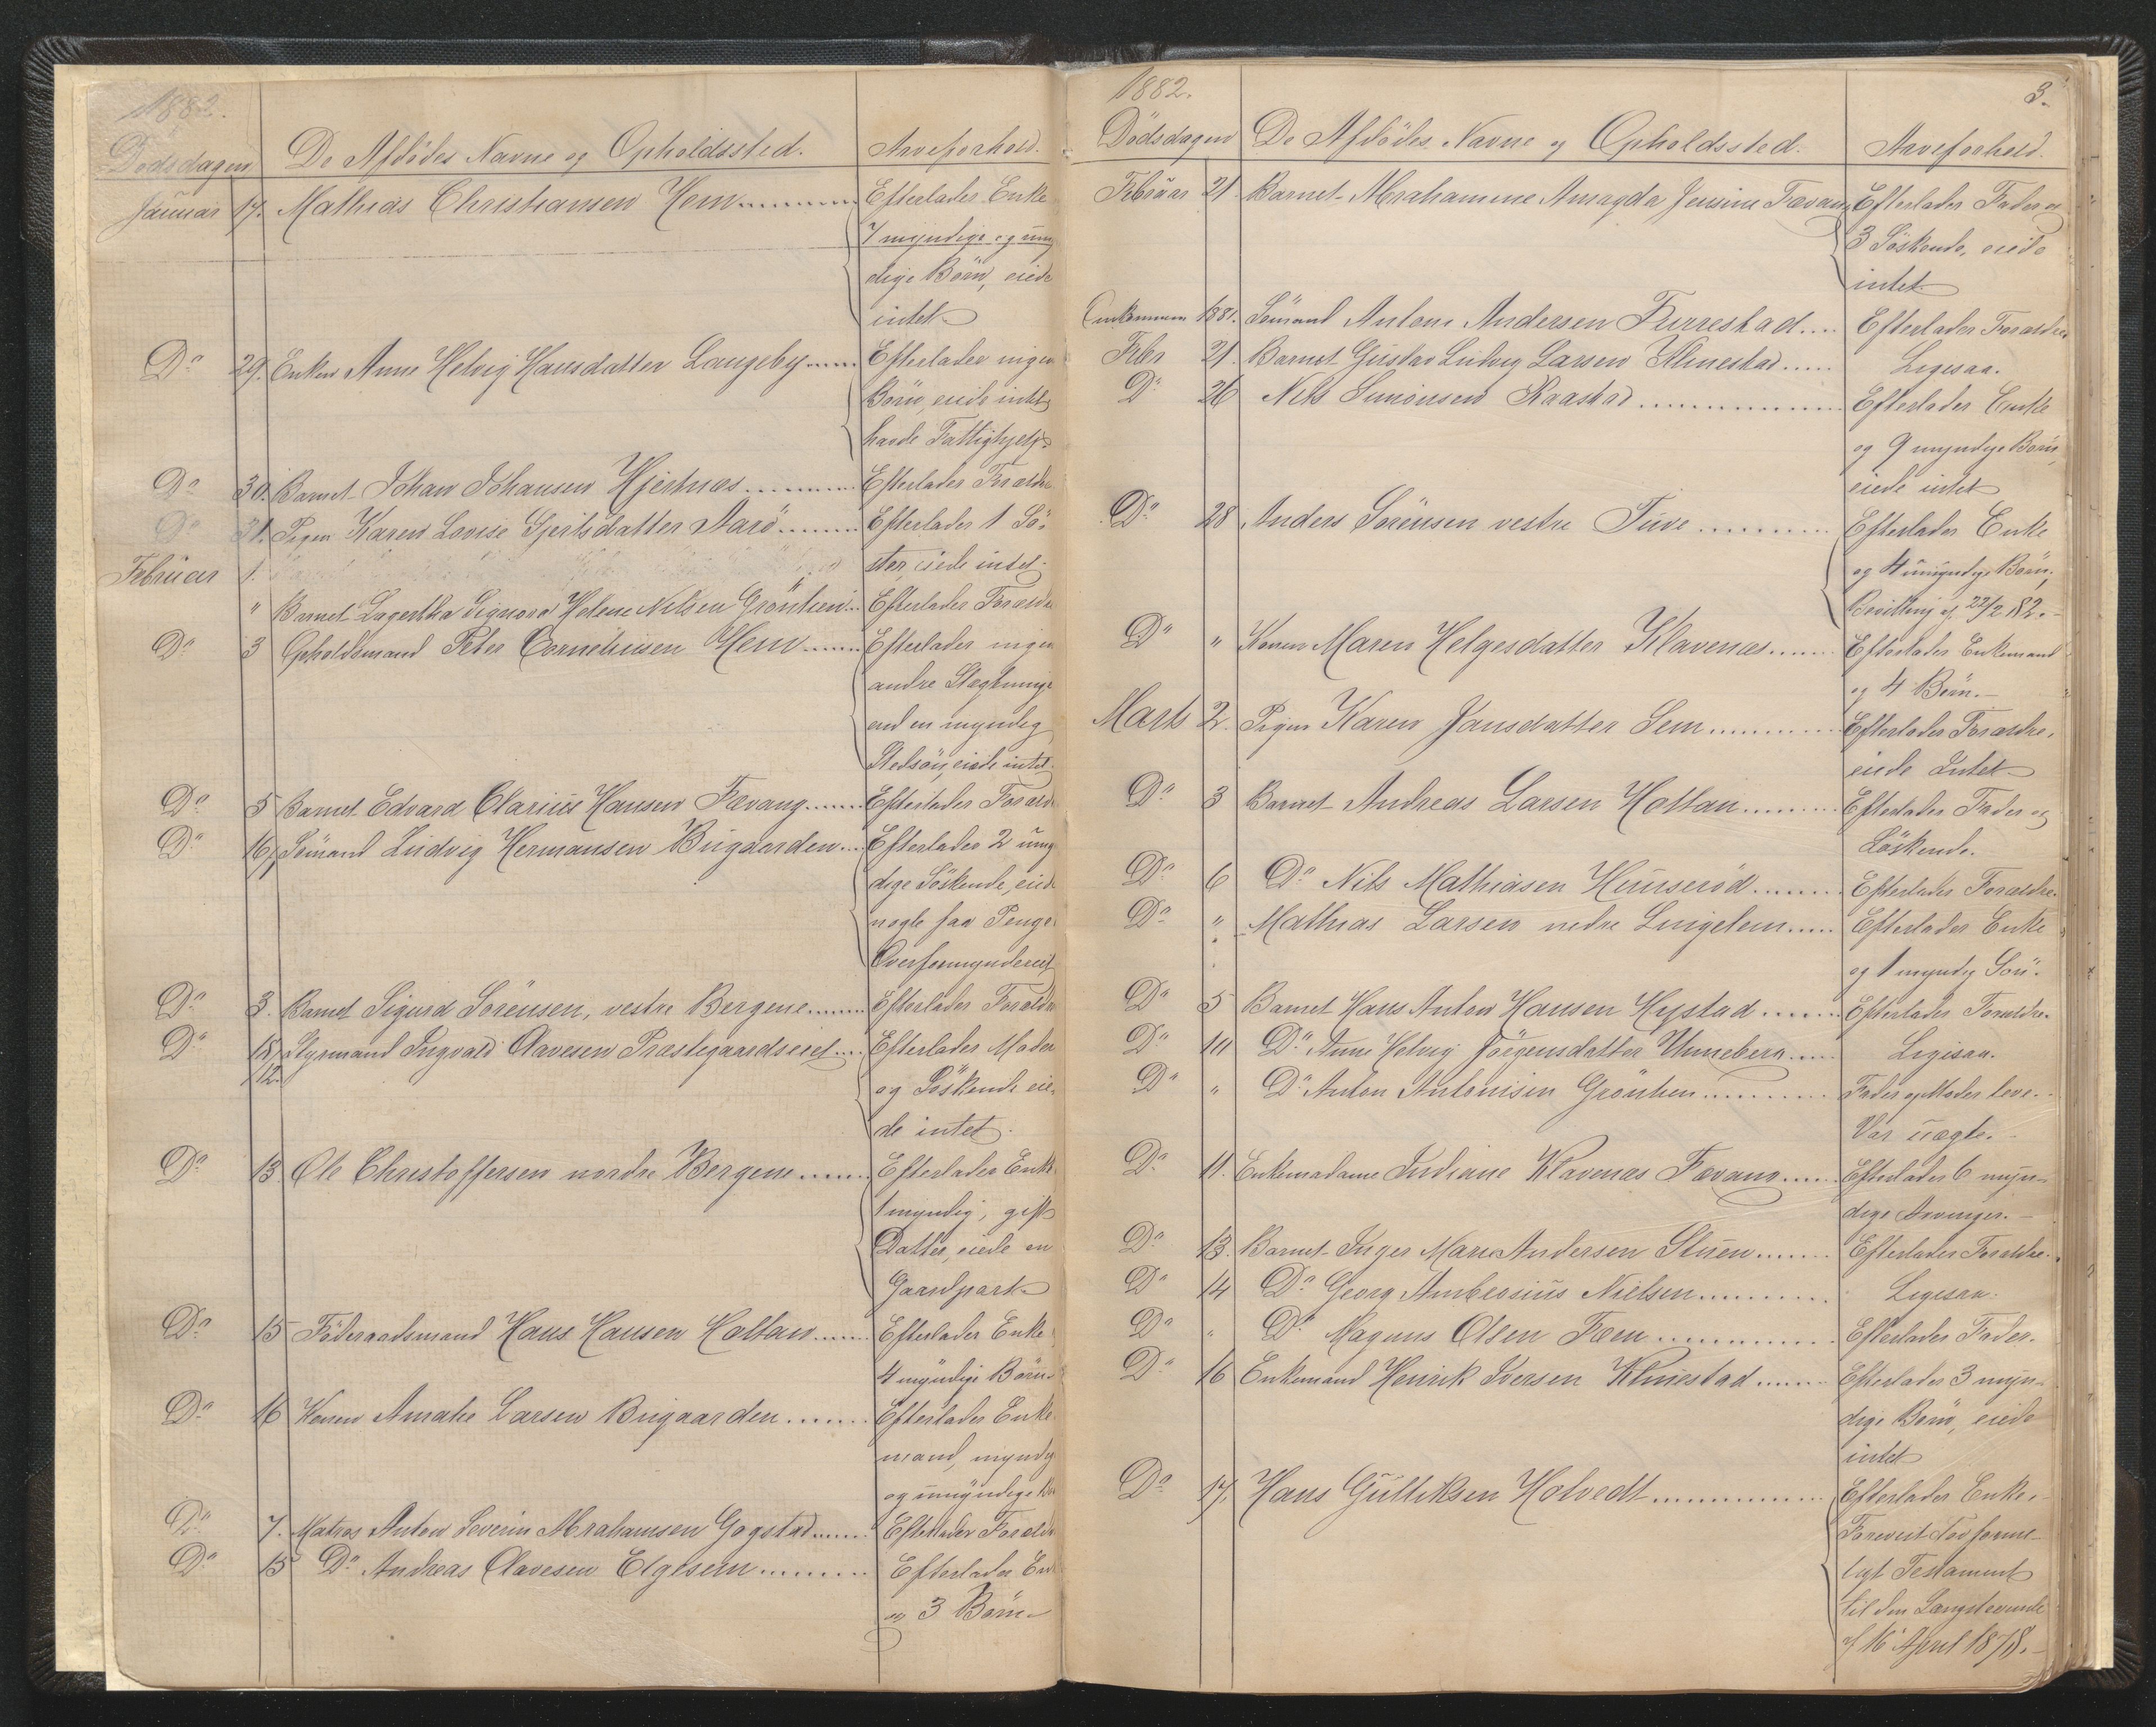 1882.
Dødsdagen De Afdødes Navne og Opholdssted. Arveforhold.
Januar 17. Mathias Christiansen Hem Efterlader Enke
7 myndige og umyn
dige Børn, eiede
intet
Do 29. Enken Anne Helvig Hansdatter Langeby Efterlader ingen
Børn, eiede intet
havde Fattighjelp
Do 30. Barnet Johan Johansen Hjertnæs Efterlader Forældre
Do 31. Pigen Karen Lovise Gjertsdatter Aarø Efterlader 1 Sø-
Februar 1. ster, eiede intet
" Barnet Lagertha Signora Helene Nilsen Grønlien Efterlader Forældre
Do 3 Opholdsmand Peter Corneliusen Hem Efterlader ingen
andre Slægtninge
end en myndig
Stedsøn, eiede intet
Do 5 Barnet Edvard Clarius Hansen Fevang Efterlader Forældre
Do 16/ Sømand Ludvig Hermansen Bugaarden Efterlader 2 umyn
dige Søskende, eiede
nogle faa Penge
Overformynderiet
Do 3. Barnet Sigurd Sørensen, vestre Bergene Efterlader Forældre
Do 18/12 Styrmand Ingvald Olavesen Præstegaardseiet Efterlader Moder
og Søskende eie-
de intet.
Do 13 Ole Christoffersen nordre Bergene Efterlader Enke
1 myndig, gift
Datter, eiede en
Gaardpart
Do 15 Føderaadsmand Hans Hansen Holtan Efterlader Enke
4 myndige Børn
Do 16 Konen Amalie Larsen Bugaarden Efterlader Enke
mand, myndige
og umyndige
Do 7. Matros Anton Severin Abrahamsen Gogstad Efterlader Forældre
Do 15 Do Andreas Olavesen Elgesem Efterlader Enke
og 3 Børn
1882. 3.
Dødsdagen De Afdødes Navne og Opholdssted. Arveforhold.
Februar 21. Barnet Abrahamine Amagda Jensine Fevang Efterlader Fader og
3 Søskende, eiede
intet
1881. Sømand Anton Andersen Furrestad Efterlader Forældre
Febr 21. Barnet Gustav Ludvig Larsen Klinestad Ligesaa.
Do 26 Nils Simonsen Raastad Efterlader Enke
og 9 myndige Børn,
eiede intet
Do 28 Anders Sørensen vestre Tuve Efterlader Enke
og 4 umyndige Børn,
Bevilling af 22/2 82.
Do " Konen Maren Helgesdatter Klavenæs Efterlader Enkemand
og 4 Børn.
Marts 2. Pigen Karen Jansdatter Sem Efterlader Forældre,
eiede Intet
Do 3 Barnet Andreas Larsen Holtan Efterlader Fader og
Søskende.
Do 6 Do Nils Mathiasen Hunserød Efterlader Forældre.
Do " Mathias Larsen nedre Lingelem Efterlader Enke
og 1 myndig Søn.
Do 5 Barnet Hans Anton Hansen Hystad Efterlader Forældre.
Do 10 Do Anne Helvig Jørgensdatter Unneberg Ligesaa.
Do " Do Anton Antonisen Grønlien Fader og Moder leve.
Var uægte.
Do 11. Enkemadame Indiane Klavenæs Fevang Efterlader 6 myn-
dige Arvinger.
Do 13. Barnet Inger Marie Andersen Stuen Efterlader Forældre.
Do 14 Do Georg Ambrosius Nielsen Ligesaa.
Do " Do Magnus Olsen Fæn Efterlader Fader.
Do 16 Enkemand Henrik Iversen Klinestad Efterlader 3 myn-
dige Børn, eiede
intet
Do 17. Hans Gulliksen Holvedt Efterlader Enke,
Forevist Lovforme-
ligt Testament
til den Længstlevende
af 16 April 1878.